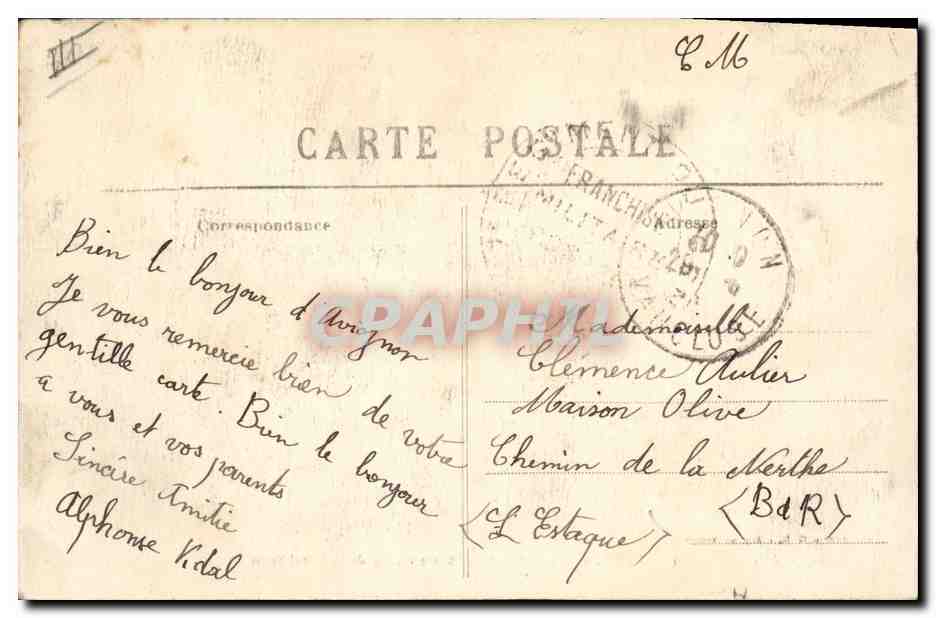 C M
CARTE POSTALE
Correspondance
Adresse
FRANCHISE
CLUSE
CPAPHIL
Bien le bonjour d'Avignon
Je vous remercie bien de votre
gentille carte. Bien le bonjour
a vous et vos parents
Sincère Amitie
Alphonse Vidal
Mademoiselle
Clémence Aulier
Maison Olive
Chemin de la Nerthe
(L'Estaque)
(BdR)